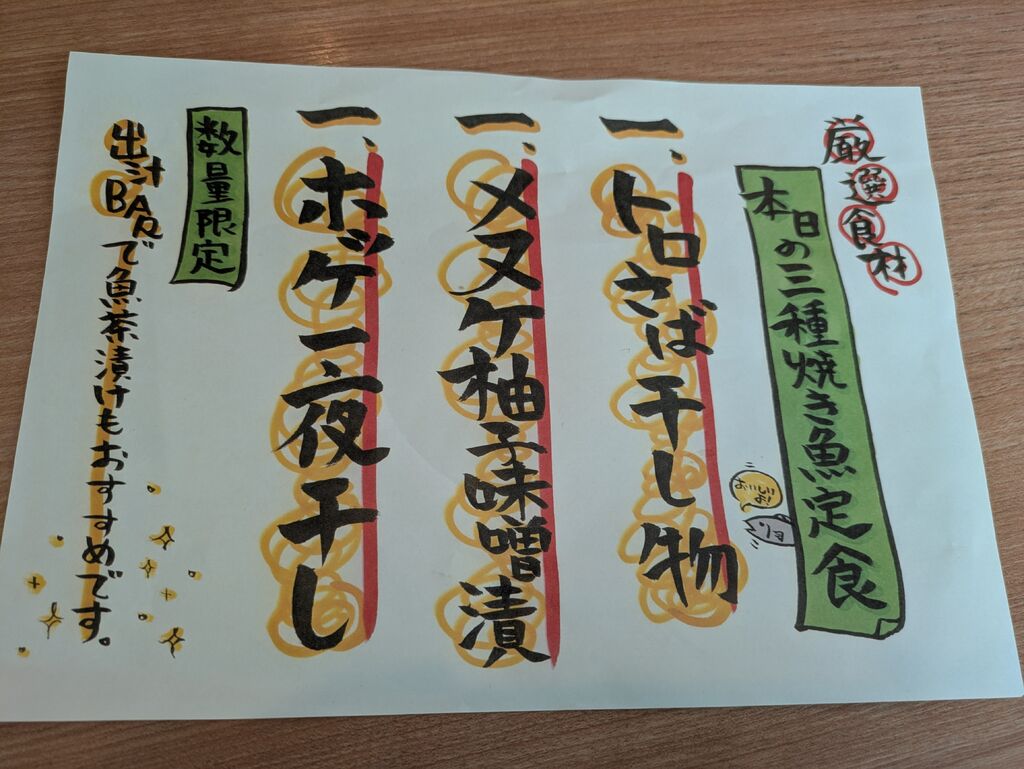 厳選食材
本日の三種焼き魚定食
おいしいよ!
一、トロさば干し物
一、メヌケ柚子味噌漬
一、ホッケ一夜干し
数量限定
出汁BARで魚茶漬けもおすすめです。